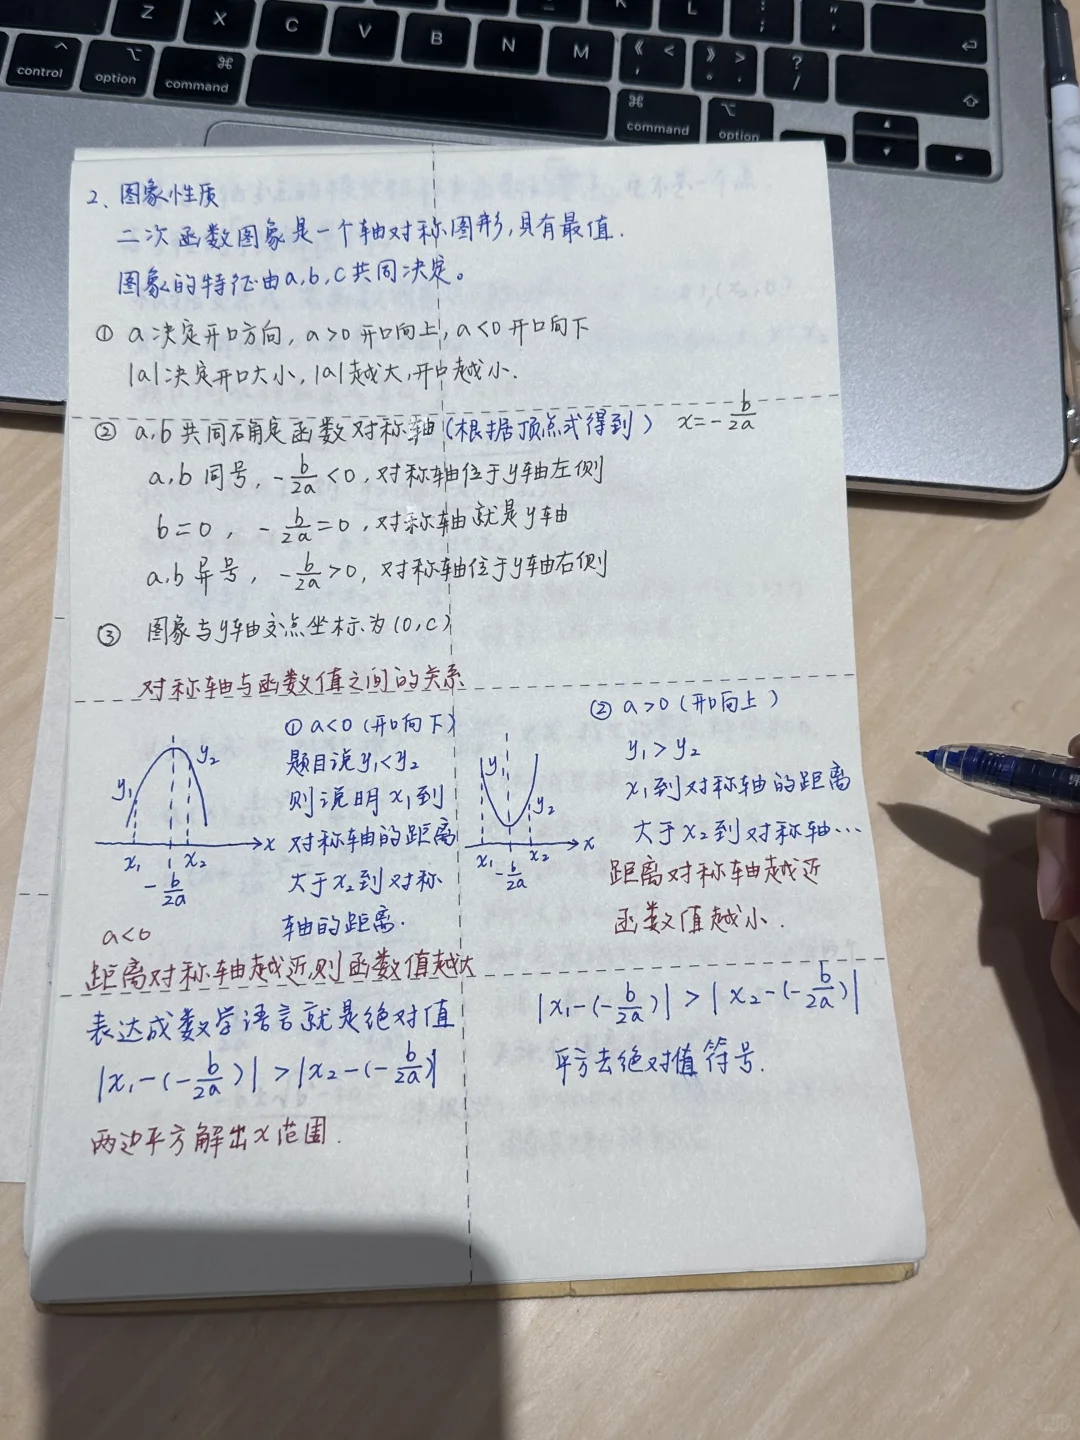 Z
X
C
V
B
N
M
K
L
control
option
command
command
option
2、图象性质
二次函数图象是一个轴对称图形,具有最值.
图象的特征由a,b,c共同决定。
① a决定开口方向, a>0开口向上, a<0开口向下
|a|决定开口大小, |a|越大,开口越小.
② a,b共同确定函数对称轴(根据顶点式得到) x=-b/2a
a,b同号, -b/2a<0, 对称轴位于y轴左侧
b=0, -b/2a=0, 对称轴就是y轴
a,b异号, -b/2a>0, 对称轴位于y轴右侧
③ 图象与y轴交点坐标为(0,c)
对称轴与函数值之间的关系
① a<0(开口向下)
题目说y₁<y₂
则说明x₁到
对称轴的距离
大于x₂到对称
轴的距离.
y₁
y₂
x
x₁
x₂
-b/2a
a<0
距离对称轴越近,则函数值越大
表达成数学语言就是绝对值
|x₁-(-b/2a)|>|x₂-(-b/2a)|
两边平方解出x范围.
② a>0(开口向上)
y₁>y₂
x₁到对称轴的距离
大于x₂到对称轴…
y₁
y₂
x
x₁
x₂
-b/2a
距离对称轴越近
函数值越小.
|x₁-(-b/2a)|>|x₂-(-b/2a)|
平方去绝对值符号.